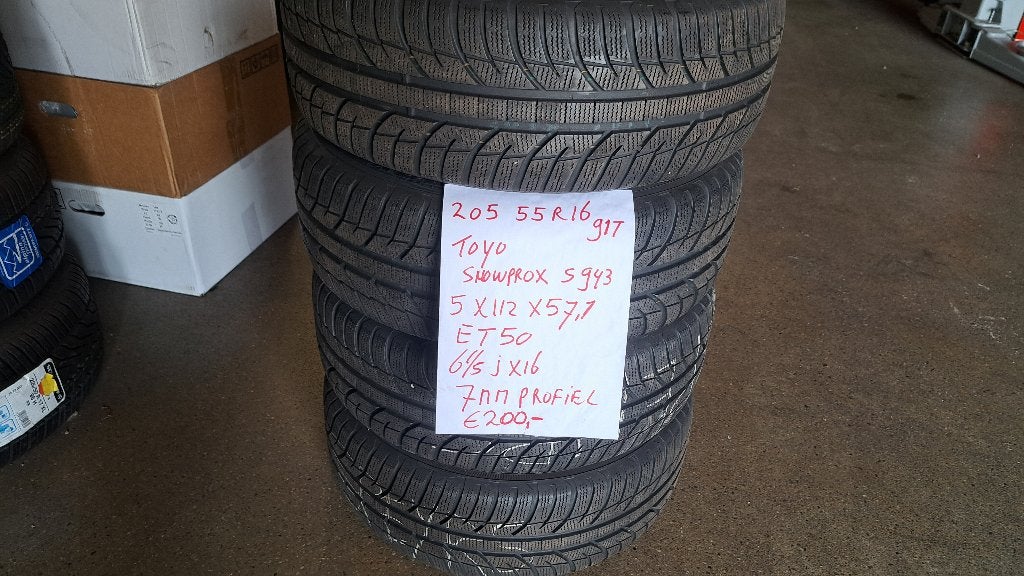 205 55R16
91T
TOYO
SNOWPROX S943
5 X 112 X 57,1
ET 50
6 1/5 j X16
7mm PROFIEL
€ 200,-